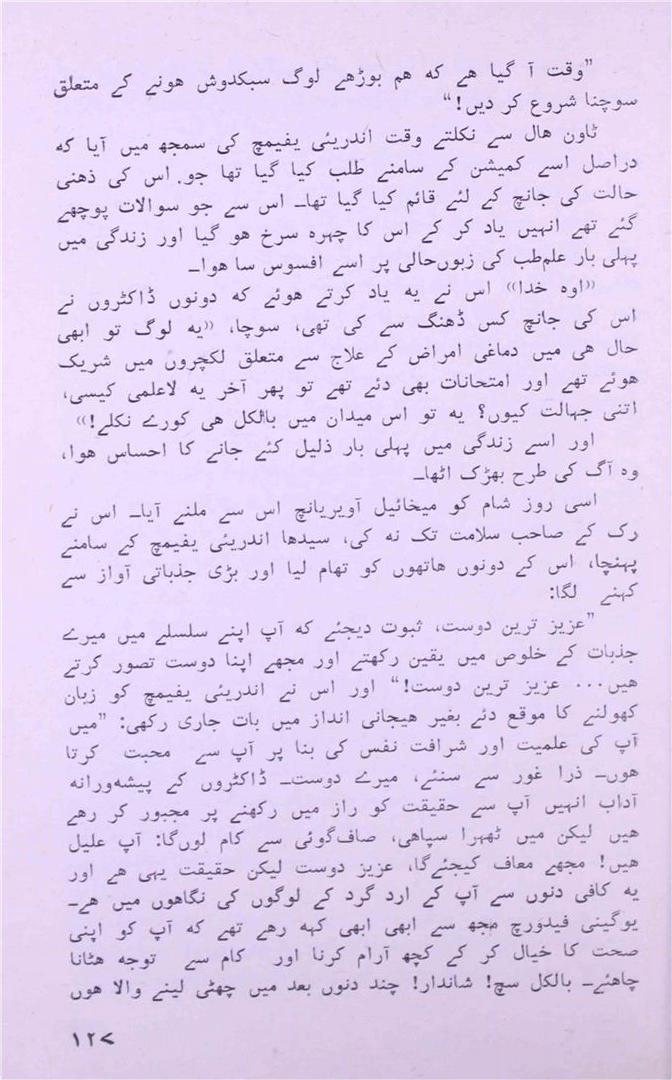 ”وقت آ گیا ھے کہ ھم بوڑھے لوگ سبکدوش ھونے کے متعلق
سوچنا شروع کر دیں!“
ٹاون ھال سے نکلتے وقت اندریئی یفیمچ کی سمجھ میں آیا کہ
دراصل اسے کمیشن کے سامنے طلب کیا گیا تھا جو اس کی ذھنی
حالت کی جانچ کے لئے قائم کیا گیا تھا۔ اس سے جو سوالات پوچھے
گئے تھے انہیں یاد کر کے اس کا چہرہ سرخ ھو گیا اور زندگی میں
پہلی بار علم‌طب کی زبوں‌حالی پر اسے افسوس سا ھوا۔
«اوہ خدا» اس نے یہ یاد کرتے ھوئے کہ دونوں ڈاکٹروں نے
اس کی جانچ کس ڈھنگ سے کی تھی، سوچا، «یہ لوگ تو ابھی
حال ھی میں دماغی امراض کے علاج سے متعلق لکچروں میں شریک
ھوئے تھے اور امتحانات بھی دئے تھے تو پھر آخر یہ لاعلمی کیسی،
اتنی جہالت کیوں؟ یہ تو اس میدان میں بالکل ھی کورے نکلے!»
اور اسے زندگی میں پہلی بار ذلیل کئے جانے کا احساس ھوا،
وہ آگ کی طرح بھڑک اٹھا۔
اسی روز شام کو میخائیل آویریانچ اس سے ملنے آیا۔ اس نے
رک کے صاحب سلامت تک نہ کی، سیدھا اندریئی یفیمچ کے سامنے
پہنچا، اس کے دونوں ھاتھوں کو تھام لیا اور بڑی جذباتی آواز سے
کہنے لگا:
”عزیز ترین دوست، ثبوت دیجئے کہ آپ اپنے سلسلے میں میرے
جذبات کے خلوص میں یقین رکھتے اور مجھے اپنا دوست تصور کرتے
ھیں... عزیز ترین دوست!“ اور اس نے اندریئی یفیمچ کو زبان
کھولنے کا موقع دئے بغیر ھیجانی انداز میں بات جاری رکھی: ”میں
آپ کی علمیت اور شرافت نفس کی بنا پر آپ سے محبت کرتا
ھوں۔ ذرا غور سے سنئے، میرے دوست۔ ڈاکٹروں کے پیشہ‌ورانہ
آداب انہیں آپ سے حقیقت کو راز میں رکھنے پر مجبور کر رھے
ھیں لیکن میں ٹھہرا سپاھی، صاف‌گوئی سے کام لوں‌گا: آپ علیل
ھیں! مجھے معاف کیجئے‌گا، عزیز دوست لیکن حقیقت یہی ھے اور
یہ کافی دنوں سے آپ کے ارد گرد کے لوگوں کی نگاھوں میں ھے۔
یوگینی فیدورچ مجھ سے ابھی ابھی کہہ رھے تھے کہ آپ کو اپنی
صحت کا خیال کر کے کچھ آرام کرنا اور کام سے توجہ ھٹانا
چاھئے۔ بالکل سچ! شاندار! چند دنوں بعد میں چھٹی لینے والا ھوں
۱۲۷